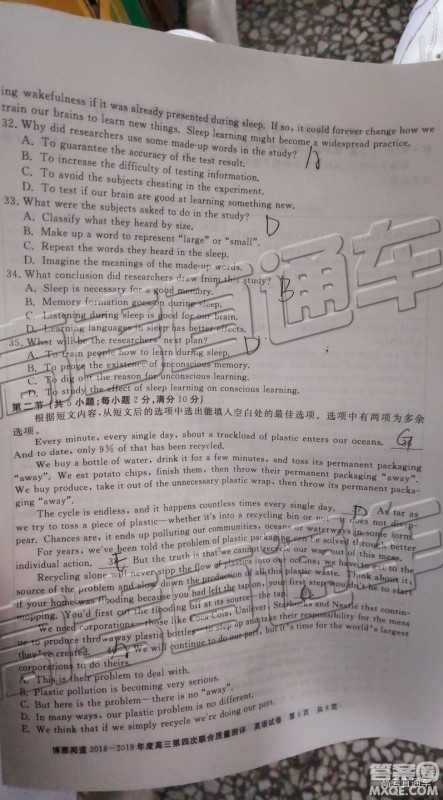 ing wakefulness if it was already presented during sleep. If so, it could forever change how we
train our brains to learn new things. Sleep learning might become a widespread practice.
32. Why did researchers use some made-up words in the study?
A. To guarantee the accuracy of the test result.
B. To increase the difficulty of testing information.
C. To avoid the subjects cheating in the experiment.
D. To test if our brain are good at learning something new.
33. What were the subjects asked to do in the study? D
A. Classify what they heard by size.
B. Make up a word to represent "large" or "small".
C. Repeat the words they heard in the sleep.
D. Imagine the meanings of the made-up words.
34. What conclusion did researchers draw from this study? B
A. Sleep is necessary for a good memory.
B. Memory formation goes on during sleep.
C. Listening during sleep is good for our brain.
D. Learning languages in sleep has better effects.
35. What will be the researchers' next plan? D
A. To train people how to learn during sleep.
B. To prove the existence of unconscious memory.
C. To dig out the reason for unconscious memory.
D. To study the effect of sleep learning on conscious learning.
第二节(共5小题;每小题2分,满分10分)
根据短文内容,从短文后的选项中选出能填入空白处的最佳选项。选项中有两项为多余
选项。
Every minute, every single day, about a truckload of plastic enters our oceans.
And to date, only 9% of that has been recycled.
We buy a bottle of water, drink it for a few minutes, and toss its permanent packaging
"away". We eat potato chips, finish them, then throw their permanent packaging "away".
We buy produce, take it out of the unnecessary plastic wrap, then throw its permanent packa-
ging "away".
The cycle is endless, and it happens countless times every single day. D As far as
we try to toss a piece of plastic—whether it's into a recycling bin or not—it does not disap-
pear. Chances are, it ends up polluting our communities, oceans or waterways in some form.
For years, we've been told the problem of plastic packaging can be solved through better
individual action. 38 But the truth is that we cannot recycle our way out of this mess.
Recycling alone will never stop the flow of plastics into our oceans; we have to get to the
source of the problem and slow down the production of all this plastic waste. Think about it:
if your home was flooding because you had left the tap on, your first step wouldn't be to start
mopping. You'd first cut the flooding off at its source—the tap.
We need corporations—those like Coca-Cola, Unilever, Starbucks and Nestle that contin-
ue to produce throwaway plastic bottles—to step up and take their responsibility for the mess
they've created. We will continue to do our part, but it's time for the world's largest
corporations to do theirs.
A. This is their problem to deal with.
B. Plastic pollution is becoming very serious.
C. But here is the problem—there is no "away".
D. In many ways, our plastic problem is no different.
E. We think that if we simply recycle we're doing our part.
博雅闻道2018—2019年度高三第四次联合质量测评 英语试卷 第6页 共8页
高考直通车
答案圈
MXQE.COM